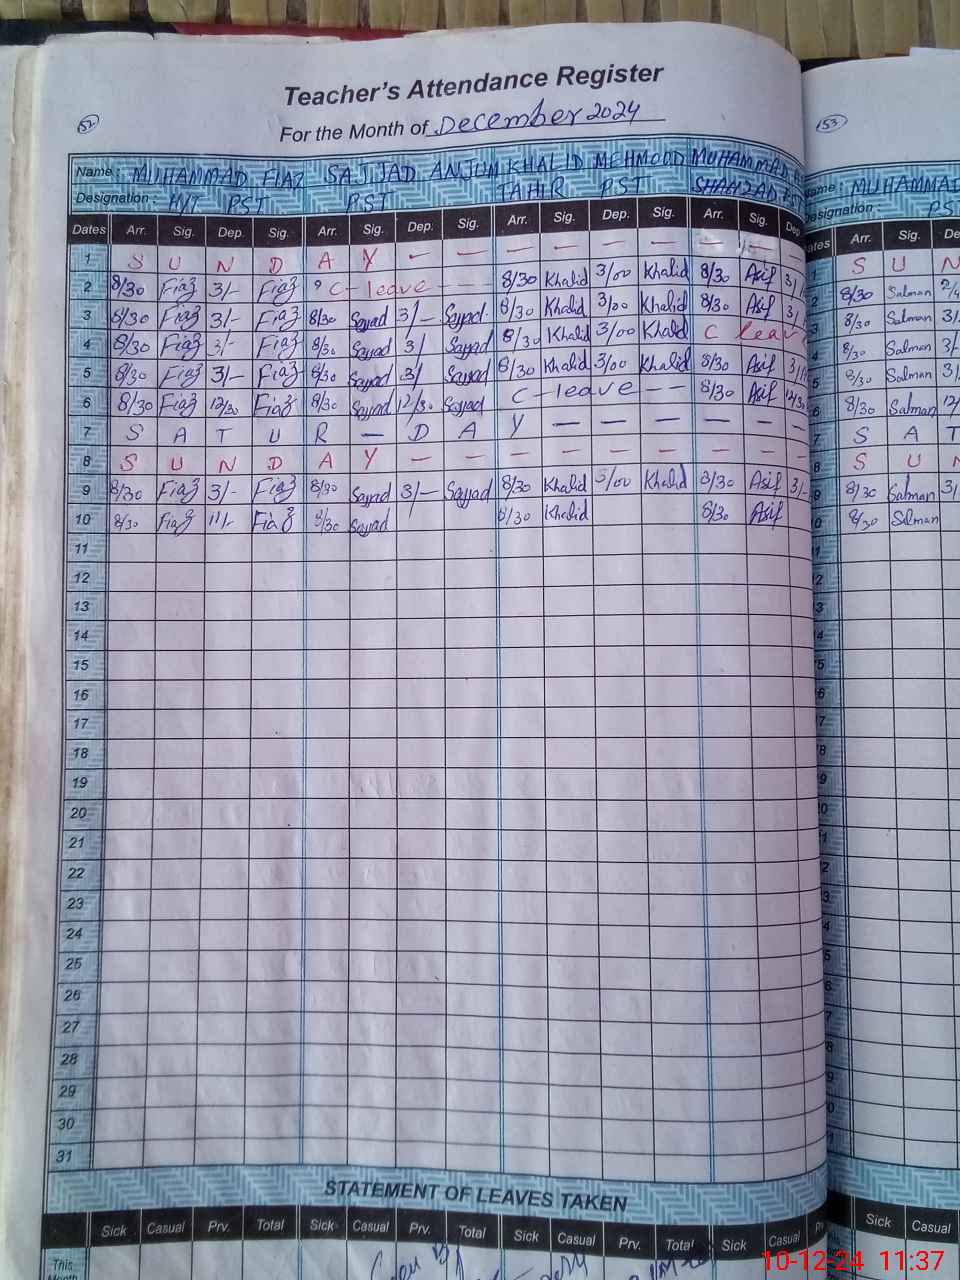 Teacher's Attendance Register
52
For the Month of December 2024
53
Name: MUHAMMAD FIAZ SAJJAD ANJUM KHALID MEHMOOD MUHAMMAD
Designation: H/T PST PST TAHIR PST SHAHZAD PST
Name: MUHAMMAD
Designation: PST
Dates Arr. Sig. Dep. Sig. Arr. Sig. Dep. Sig. Arr. Sig. Dep. Sig. Arr. Sig. Dep
Arr. Sig. De
1 S U N D A Y — — — — — — — —
S U N
2 8/30 Fiaz 3/- Fiaz C-leave - - - 8/30 Khalid 3/00 Khalid 8/30 Asif 3/
8/30 Salman
3 8/30 Fiaz 3/- Fiaz 8/30 Sajjad 3/- Sajjad 8/30 Khalid 3/00 Khalid 8/30 Asif 3/
8/30 Salman 3/
4 8/30 Fiaz 3/- Fiaz 8/30 Sajjad 3/ Sajjad 8/30 Khalid 3/00 Khalid C leav
8/30 Salman 3/-
5 8/30 Fiaz 3/- Fiaz 8/30 Sajjad 3/ Sajjad 8/30 Khalid 3/00 Khalid 8/30 Asif 3/
8/30 Salman 3/-
6 8/30 Fiaz 12/30 Fiaz 8/30 Sajjad 12/30 Sajjad C-leave — — 8/30 Asif 12/30
8/30 Salman 12/
7 S A T U R — D A Y — — — — — —
S A T
8 S U N D A Y — — — — — — — — —
S U N
9 8/30 Fiaz 3/- Fiaz 8/30 Sajjad 3/- Sajjad 8/30 Khalid 3/00 Khalid 8/30 Asif 3/-
8/30 Salman 3/
10 8/30 Fiaz 11/- Fiaz 8/30 Sajjad 8/30 Khalid 8/30 Asif
8/30 Salman
11
12
13
14
15
16
17
18
19
20
21
22
23
24
25
26
27
28
29
30
31
STATEMENT OF LEAVES TAKEN
Sick Casual Prv. Total Sick Casual Prv. Total Sick Casual Prv. Total Sick Casual
Sick Casual
This
Month
10-12-24 11:37